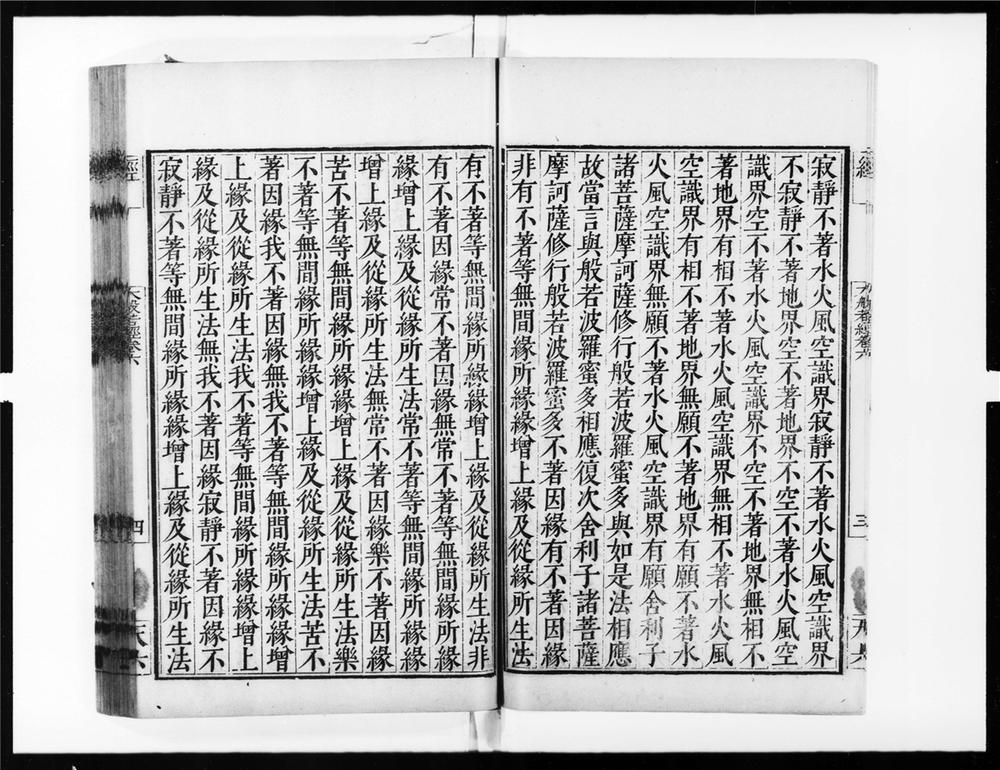 寂靜不著水火風空識界寂靜不著水火風空識界
不寂靜不著地界空不著地界不空不著水火風空
識界空不著水火風空識界不空不著地界無相不
著地界有相不著水火風空識界無相不著水火風
空識界有相不著地界無願不著地界有願不著水
火風空識界無願不著水火風空識界有願舍利子
諸菩薩摩訶薩修行般若波羅蜜多與如是法相應
故當言與般若波羅蜜多相應復次舍利子諸菩薩
摩訶薩修行般若波羅蜜多不著因緣有不著因緣
非有不著等無間緣所緣緣增上緣及從緣所生法
有不著等無間緣所緣緣增上緣及從緣所生法非
有不著因緣常不著因緣無常不著等無間緣所緣
緣增上緣及從緣所生法常不著等無間緣所緣緣
增上緣及從緣所生法無常不著因緣樂不著因緣
苦不著等無間緣所緣緣增上緣及從緣所生法樂
不著等無間緣所緣緣增上緣及從緣所生法苦不
著因緣我不著因緣無我不著等無間緣所緣緣增
上緣及從緣所生法我不著等無間緣所緣緣增上
緣及從緣所生法無我不著因緣寂靜不著因緣不
寂靜不著等無間緣所緣緣增上緣及從緣所生法
經 大般若經卷六 四 天六